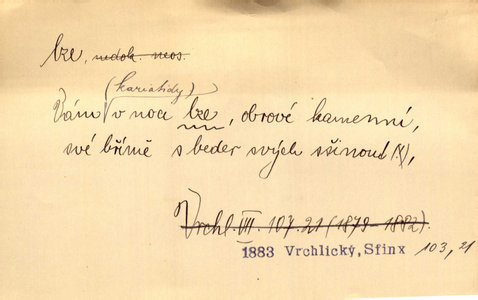 lze, nedok. neos.
(kariatidy)
Vám v noci lze, obrové kamenní,
své břímě s beder svých sšinout (!),
Vrchl. VII. 107. 21 (1879–1882).
1883 Vrchlický, Sfinx 103, 21